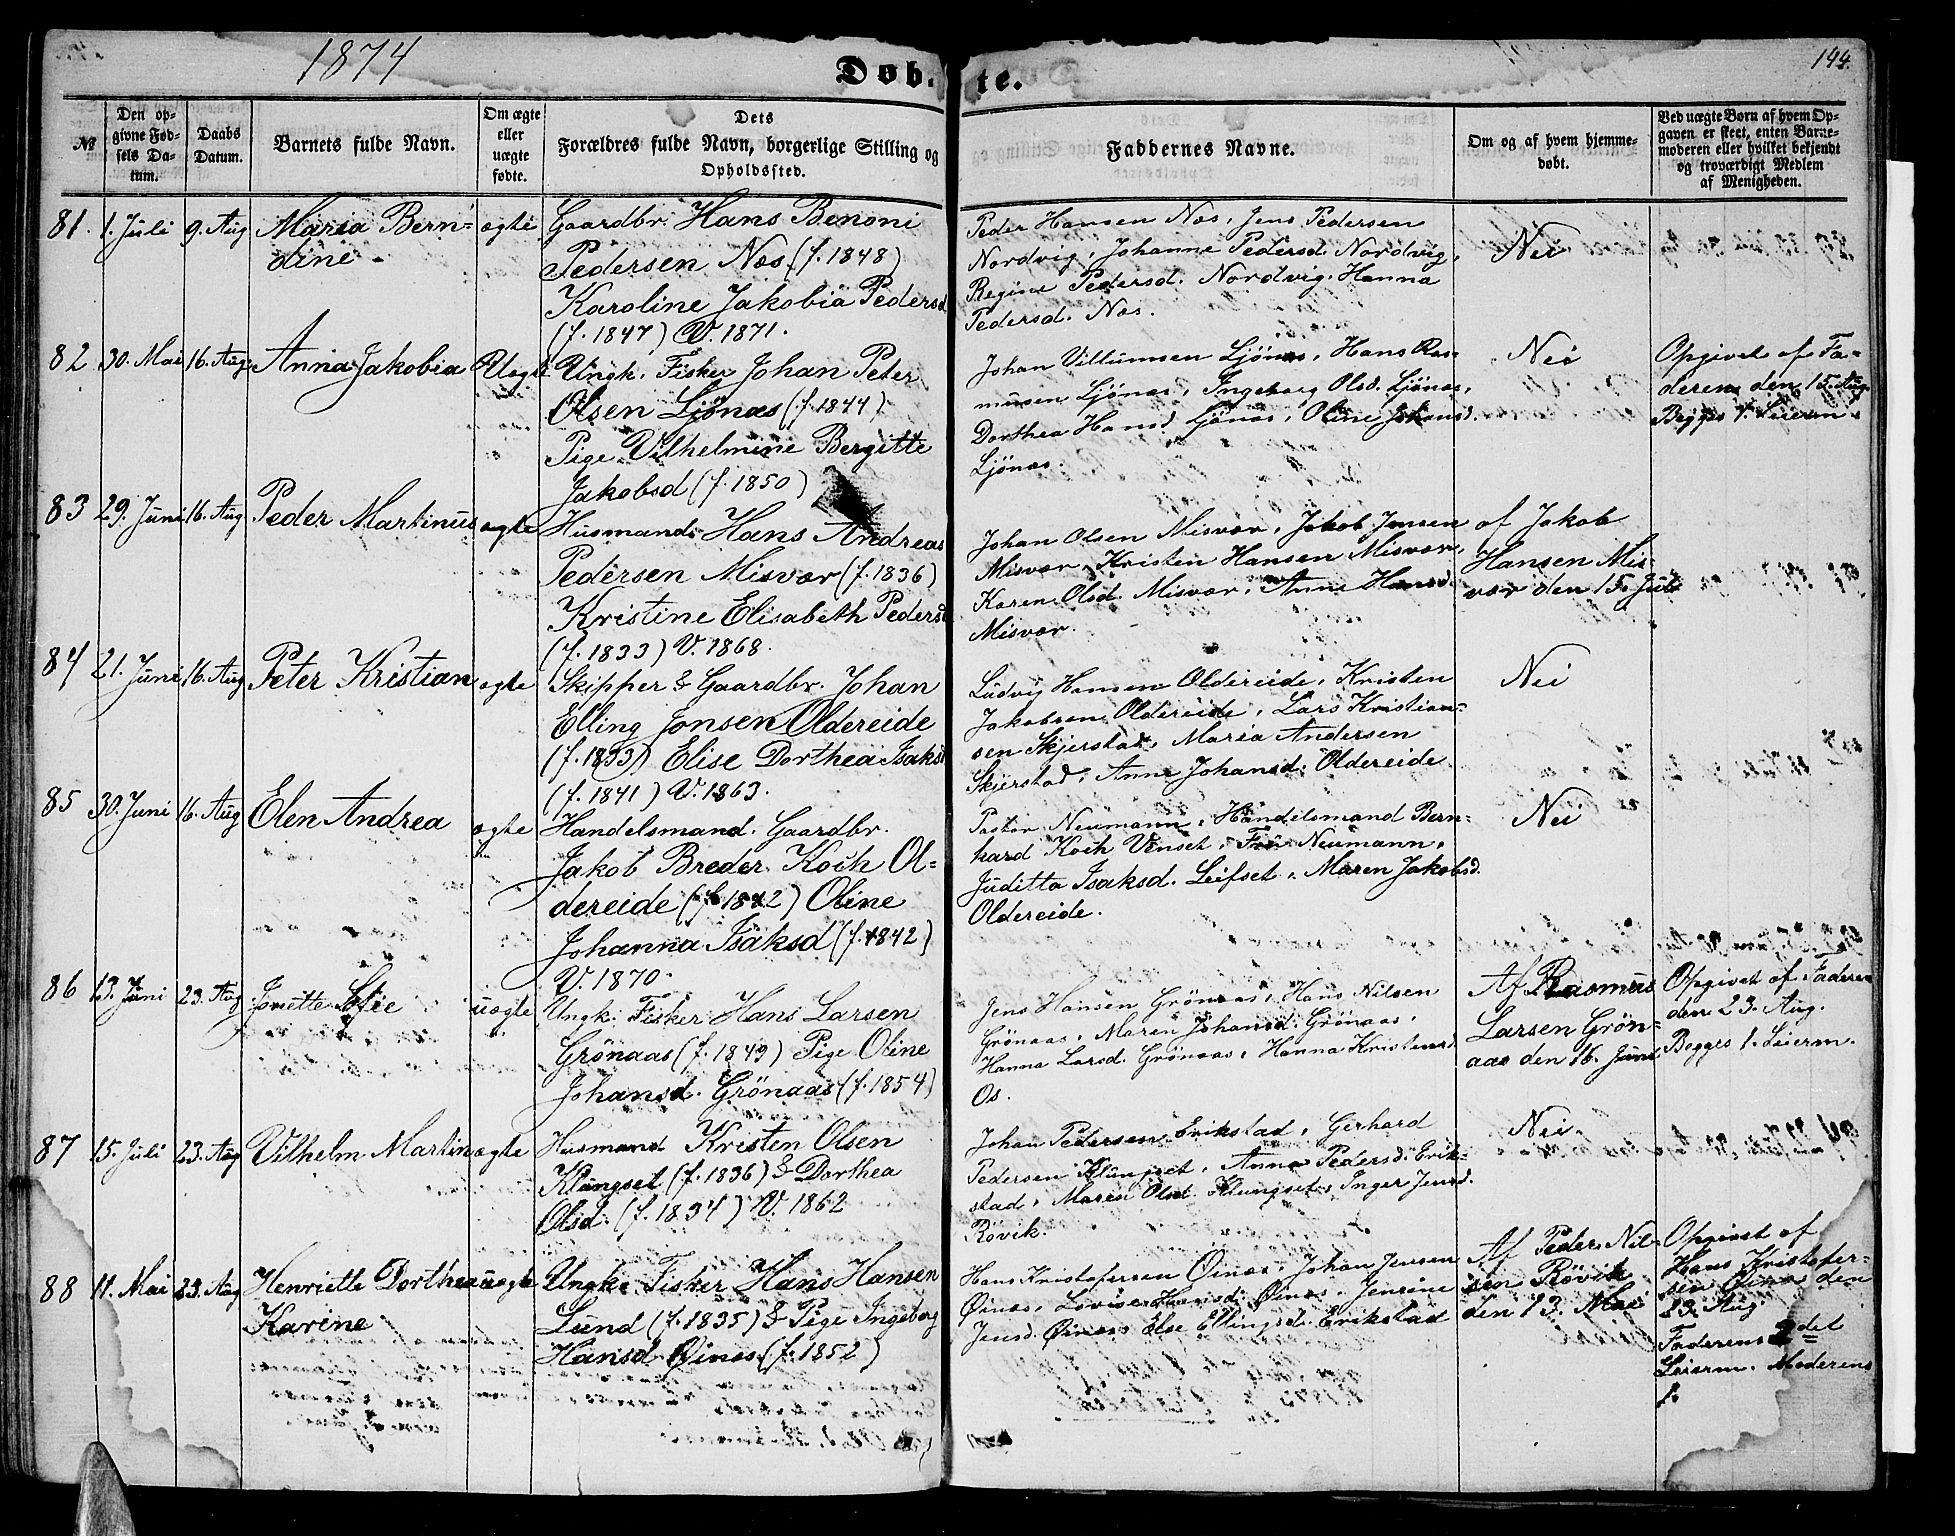 1874
Døbte.
144.
№
Den opgivne Fødsels Datum.
Daabs Datum.
Barnets fulde Navn.
Om ægte eller uægte fødte.
Dets Forældres fulde Navn, borgerlige Stilling og Opholdssted.
Faddernes Navne.
Om og af hvem hjemmedøbt.
Ved uægte Børn af hvem Opgaven er skeet, enten Barnemoderen eller hvilket bekjendt og troværdigt Medlem af Menigheden.
81. 1. Juli 9. Aug Maria Bern-
dine
ægte
Gaardbr. Hans Benoni
Pedersen Næs (f. 1848)
Karoline Jakobia Pedersd
(f. 1847) V. 1871.
Peder Hansen Næs, Jens Pedersen
Nordvig, Johanne Pedersd. Nordvig,
Regine Pedersd. Nordvig. Hanna
Pedersd. Næs.
Nei
82 30. Mai 16. Aug. Anna Jakobia
Uægte
Ungk. Fisker Johan Peter
Olsen Ljönæs (f. 1844)
Pige Vilhelmine Bergitte
Jakobsd (f. 1850)
Johan Villumsen Ljönæs, Hans Ras-
musen Ljönæs, Ingeborg Olsd. Ljönæs,
Dorthea Hansd Ljönæs, Oline Johansd.
Ljönæs.
Nei
Opgivet af Fa-
deren den 15. Aug.
Begges 1. Leierm
83 29. Juni 16. Aug Peder Martinus
ægte
Husmand Hans Andreas
Pedersen Misvær (f. 1836)
Kristine Elisabeth Pedersd
(f. 1833) V. 1868.
Johan Olsen Misvær, Jakob Jensen
Misvær, Kristen Hansen Misvær,
Karen Olsd. Misvær, Anne Hansd.
Misvær.
af Jakob
Hansen Mis-
vær den 15. Juli
84 21. Juni 16. Aug Peter Kristian
ægte
Skipper & Gaardbr. Johan
Elling Jonsen Oldereide
(f. 1833) Elise Dorthea Isaksd
(f. 1841) V. 1863.
Ludvig Hansen Oldereide, Kristen
Jakobsen Oldereide, Lars Kristian-
sen Skjerstad, Maria Andersen
Skjerstad, Anne Johansd. Oldereide
Nei
85 30. Juni 16. Aug Elen Andrea
ægte
Handelsmand. Gaardbr.
Jakob Breder Koch Ol-
dereide (f. 1842) Oline
Johanna Isaksd (f. 1842)
V. 1870.
Pastor Neumann, Handelsmand Bern-
hard Koch Venset, Fru Neumann,
Juditta Isaksd. Leifset, Maren Jakobsd.
Oldereide.
Nei
86 13. Juni 23. Aug Jonette Sofie
uægte
Ungk. Fisker Hans Larsen
Grönaas (f. 1849) Pige Oline
Johansd. Grönaas (f. 1854)
Jens Hansen Grönaas, Hans Nilsen
Grönaas, Maren Johansd. Grönaas,
Hanna Larsd. Grönaas, Hanna Kristensd
Os.
Af Rasmus
Larsen Grön-
aas den 16. Juni
Opgivet af Faderen
den 23. Aug.
Begges 1. Leierm.
87 15. Juli 23. Aug Vilhelm Martin
ægte
Husmand Kristen Olsen
Klungset (f. 1836) & Dorthea
Olsd. (f. 1834) V. 1862
Johan Pedersen Erikstad, Gerhard
Pedersen Klungset, Anna Pedersd. Erik-
stad, Maren Olsd. Klungset, Inger Jensd.
Rövik.
Nei
88 11. Mai 23. Aug Henriette Dorthea
Karine
uægte
Ungk. Fisker Hans Hansen
Lund (f. 1835) & Pige Ingeborg
Hansd Öinæs (f. 1852)
Hans Kristofersen Öinæs, Johan Jensen
Öinæs, Lovise Hansd. Öinæs, Jensine
Jensd. Öinæs Else Ellingsd. Erikstad
Af Peder Nil-
sen Rövik
den 13. Mai
Opgivet af
Hans Kristofer-
sen Öinæs den
23 Aug.
Faderens 2det
Leierm. Moderens
1.